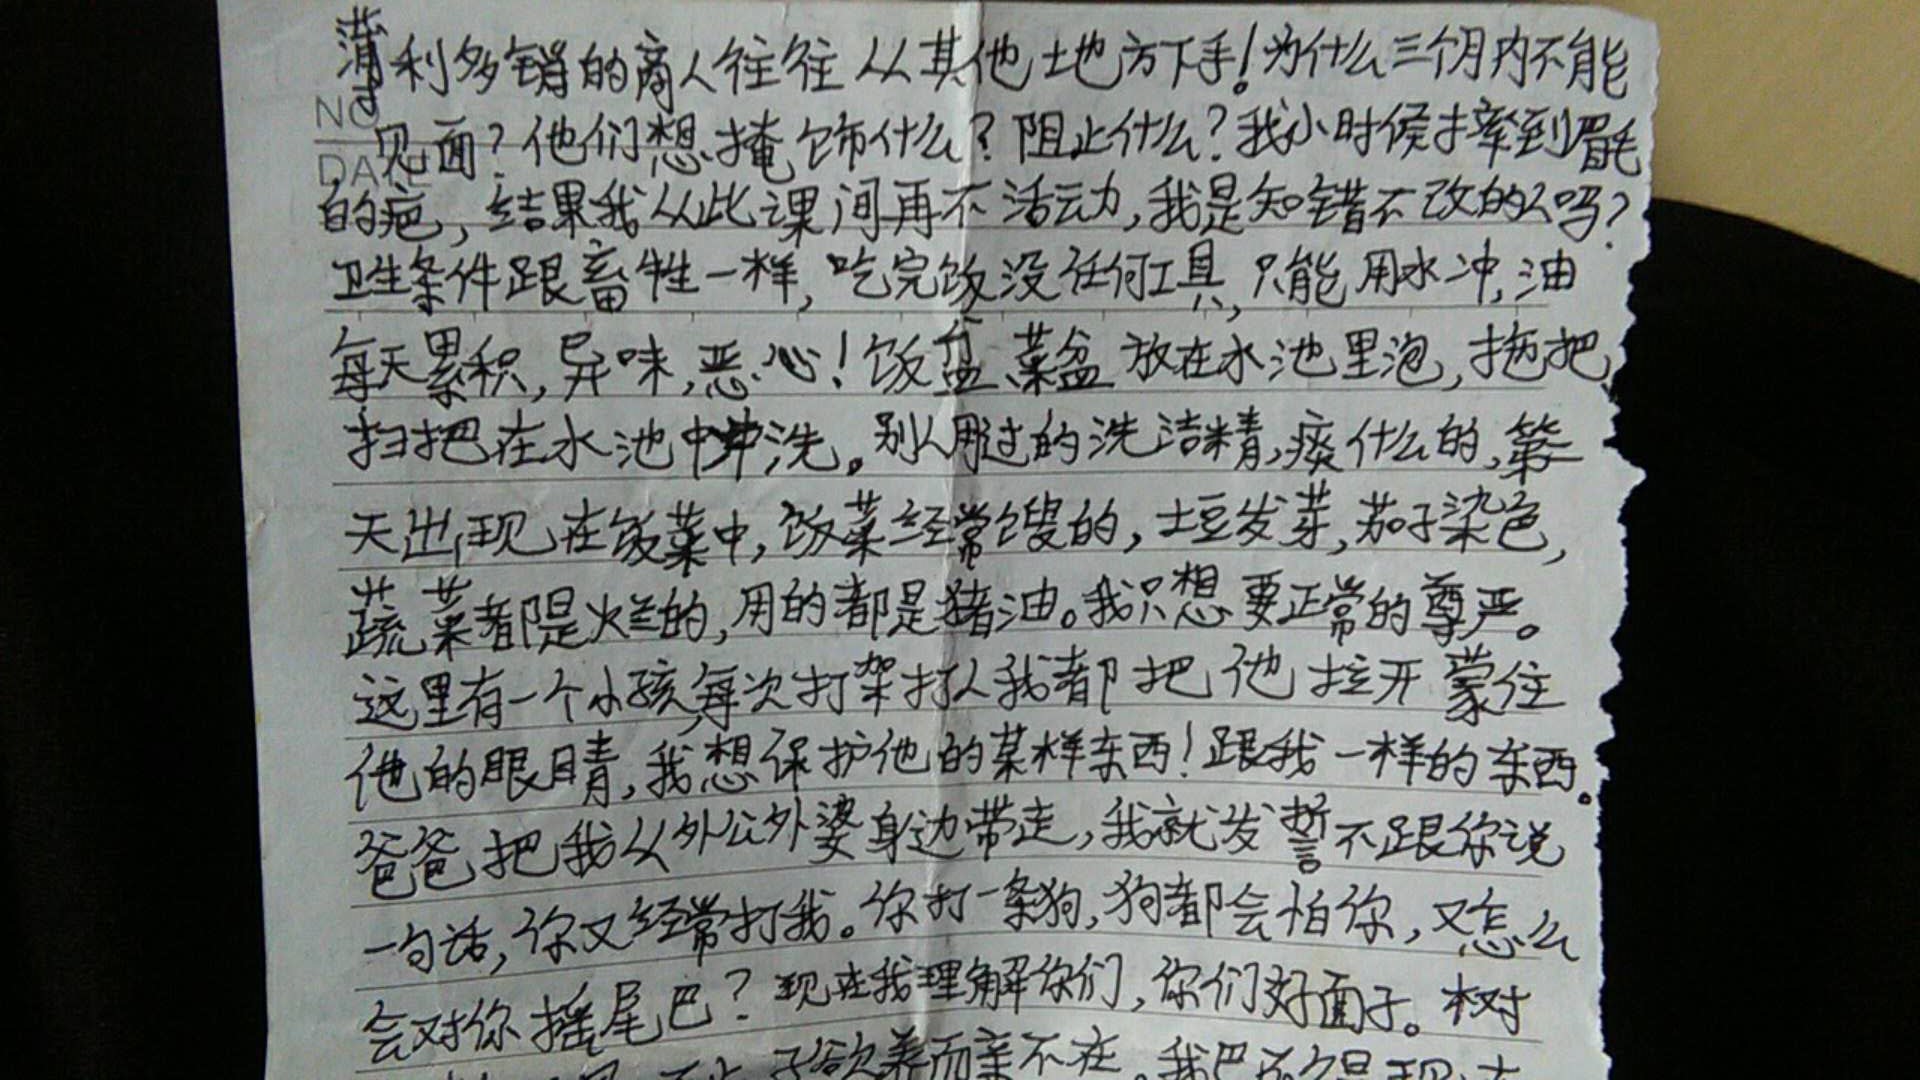 薄利多销的商人往往从其他地方下手!为什么三个月内不能
NO
见面?他们想掩饰什么?阻止什么?我小时候才摔到眉毛
DATE
的疤,结果我从此课间再不活动,我是知错不改的人吗?
卫生条件跟畜牲一样,吃完饭没任何工具,只能用水冲,油
每天累积,异味,恶心!饭盆菜盆放在水池里泡,拖把
扫把在水池中冲洗。别人用过的洗洁精,痰什么的,第二
天出现在饭菜中,饭菜经常馊的,土豆发芽,茄子染色,
蔬菜都是烂的,用的都是猪油。我只想要正常的尊严。
这里有一个小孩,每次打架打人我都把他拉开蒙住
他的眼睛,我想保护他的某样东西!跟我一样的东西。
爸爸把我从外公外婆身边带走,我就发誓不跟你说
一句话,你又经常打我。你打一条狗,狗都会怕你,又怎么
会对你摇尾巴?现在我理解你们,你们好面子。树
子欲养而亲不在。我巴不得现在